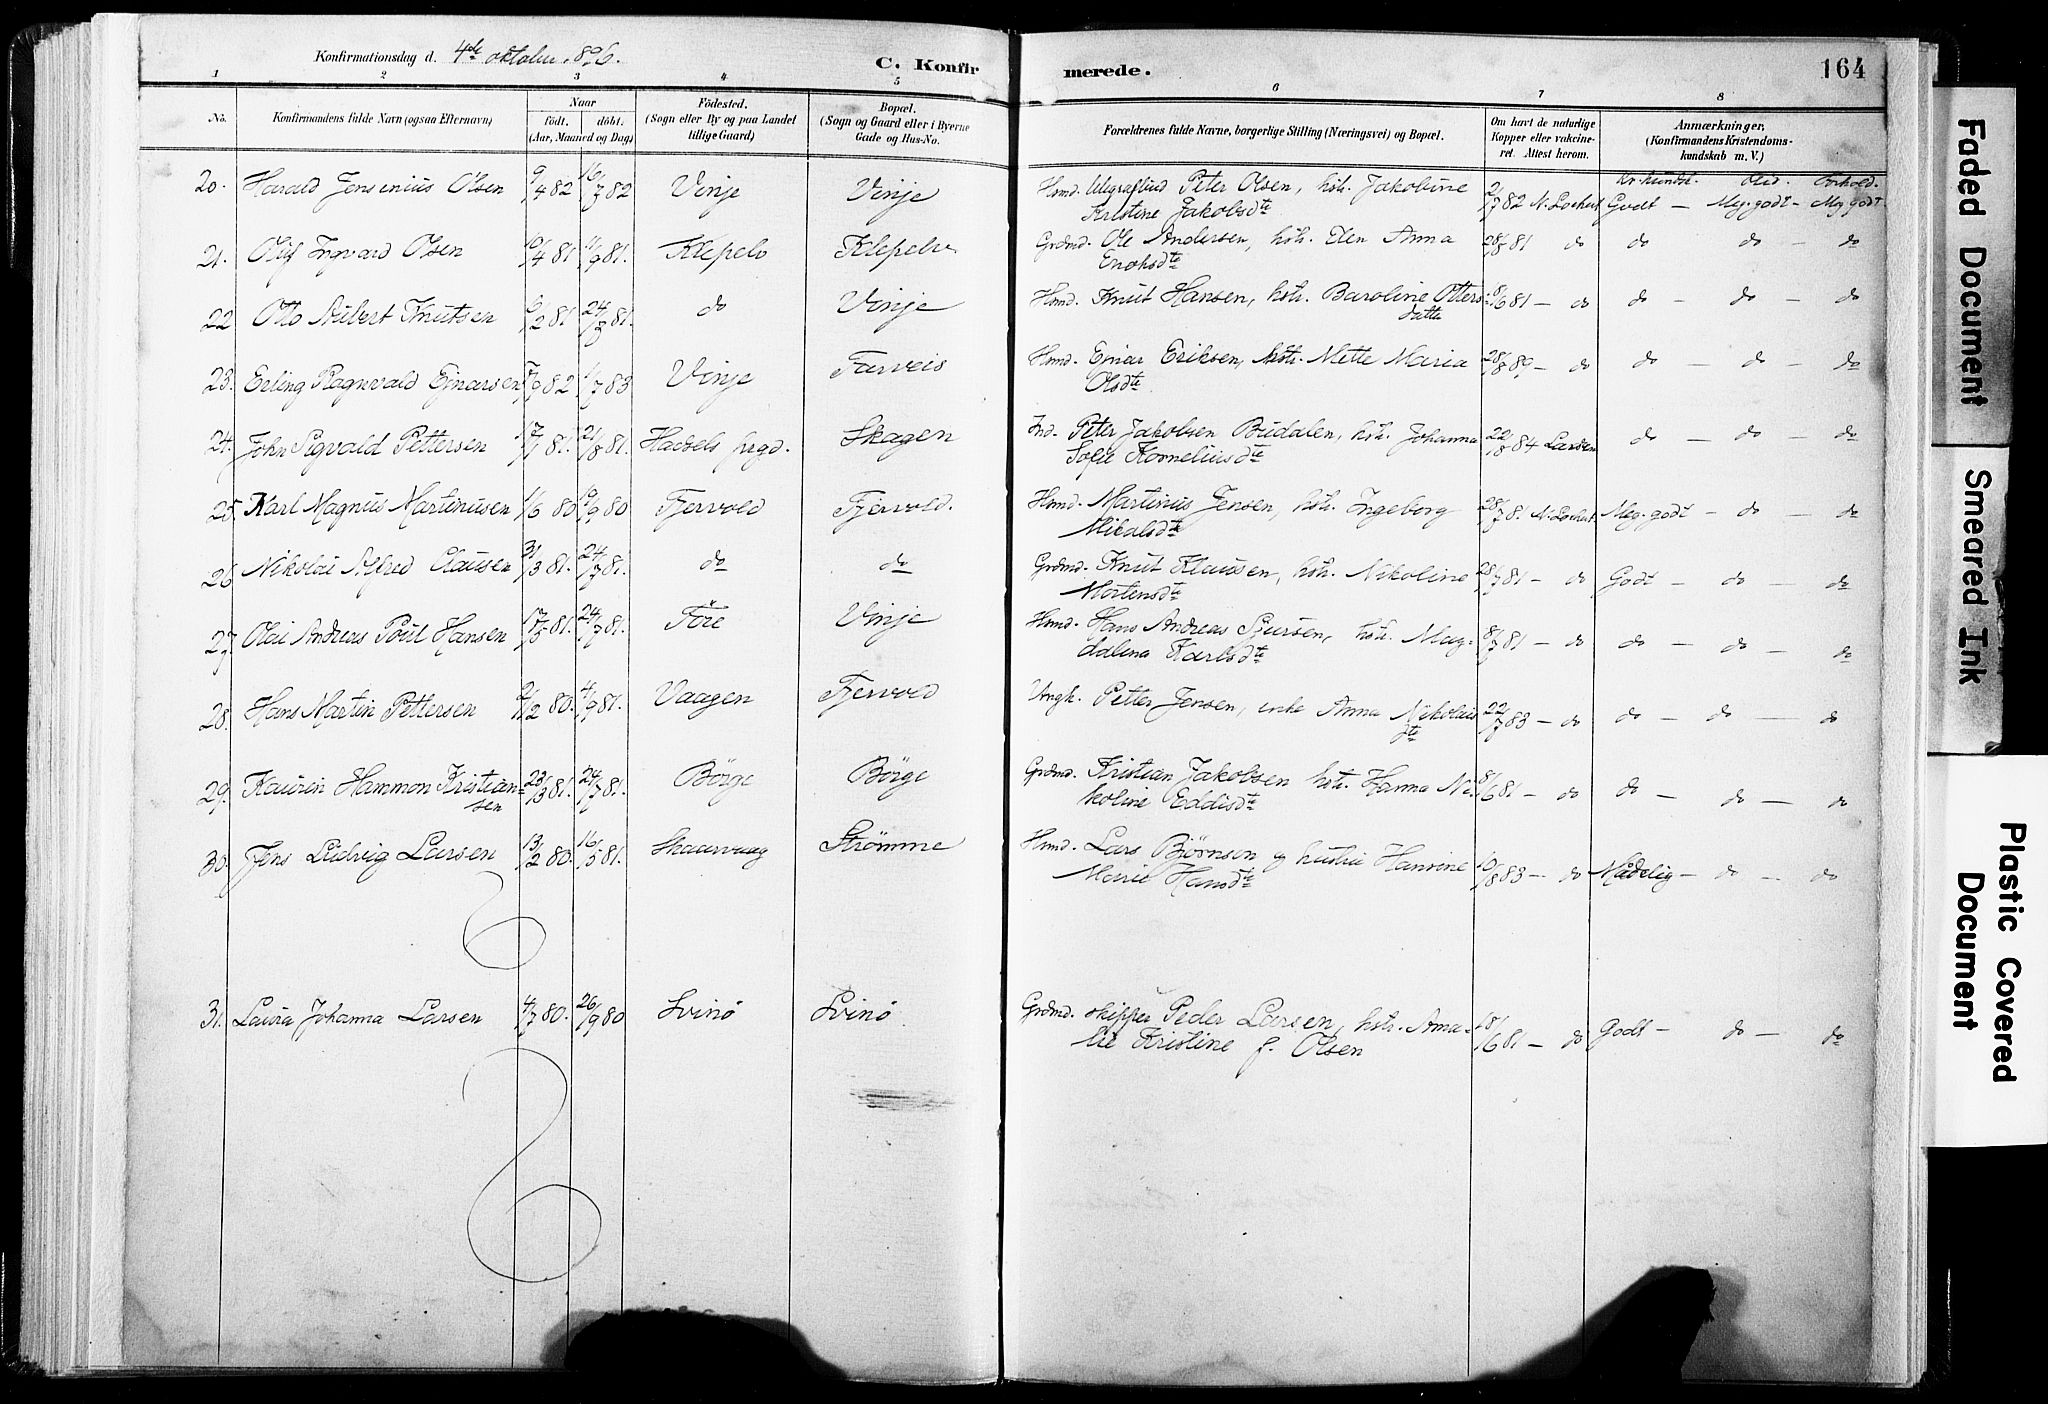 Konfirmationsdag d. 4de oktober 1896.
C. Konfirmerede.
164
1 2 3 4 5 6 7 8
No. Konfirmandens fulde Navn (ogsaa Efternavn) Naar født. døbt. (Aar, Maaned og Dag) Födested. (Sogn eller By og paa Landet tillige Gaard) Bopæl. (Sogn og Gaard eller i Byerne Gade og Hus-No. Forældrenes fulde Navne, borgerlige Stilling (Næringsvei) og Bopæl. Om havt de naturlige Kopper eller vaccineret. Attest herom. Anmærkninger. (Konfirmandens Kristendomskundskab m. V.)
Kr. kundsk. Flid. Forhold.
20. Harald Jensenius Olsen 9/4 82 16/7 82 Vinje Vinje Hsmd. telegrafbud Peter Olsen, hstr. Jakobine
Kristine Jakobsdte 2/7 82 N. Lochert Godt — Meg. godt — Meg godt
21. Oluf Ingvard Olsen 10/4 81 11/9 81. Klepelv Klepelv Grdmd. Ole Andersen, hstr. Elen Anna
Enoksdte 28/8 81 do do do — do
22 Otto Aubert Knutsen 6/2 81 24/3 81. do Vinje Hsmd. Knut Hansen, hstr. Baroline Otters-
datter 8/6 81 — do do — do — do
23. Erling Ragnvald Ejnarsen 7/9 82 1/7 83 Vinje Farveis Hsmd. Ejnar Eriksen, hstr. Mette Maria
Olsdte 28/8 89 — do do — do — do
24. John Sigvald Pettersen 17/1 81. 21/8 81. Hadsels prgd. Skagen Ind. Peter Jakobsen Budalen, hstr. Johanna
Sofie Korneliusdte 22/8 84 Larsen do — do — do
25. Karl Magnus Martinusen 1/6 80 19/9 80 Fjervold Fjervold. Hsmd. Martinus Jensen, hstr. Ingeborg
Mikalsdte 28/7 81 N. Lochert Meg. godt — do — do
26 Nikolai Alfred Clausen 31/3 81. 24/7 81. do do Grdmd. Knut Klausen, hstr. Nikoline
Mortensdte 28/7 81 — do Godt — do — do
27. Olai Andreas Poul Hansen 17/5 81. 24/7 81. Före Vinje Hsmd. Hans Andreas Sjursen, hstr. Mag-
dalena Karlsdte 8/7 81 — do do — do — do
28. Hans Martin Pettersen 2/12 80. 4/9 81. Vaagen Fjervold Ungk. Petter Jensen, enke Anna Nikolais
dte 22/7 83 — do do — do — do
29. Laurin Hammon Kristian-
sen 23/3 81. 24/7 81. Börge Börge Grdmd. Kristian Jakobsen hstr. Hanna Ni-
koline Eddisdte 8/6 81 — do do — do — do
30. Jens Ludvig Larsen 13/2 80. 16/5 81. Skaarvaag Strömme Hsmd. Lars Bjørnsen og hustru Hansine
Marie Hansdte 10/8 83 — do Mådelig — do — do
31. Laura Johanna Larsen 4/7 80. 26/9 80 Svinö Svinö Grdmd. skipper Peder Larsen, hstr. Ama-
lie Kristine f. Olsen 18/6 81 — do Godt — do — do
Faded Document
Smeared Ink
Plastic Covered Document